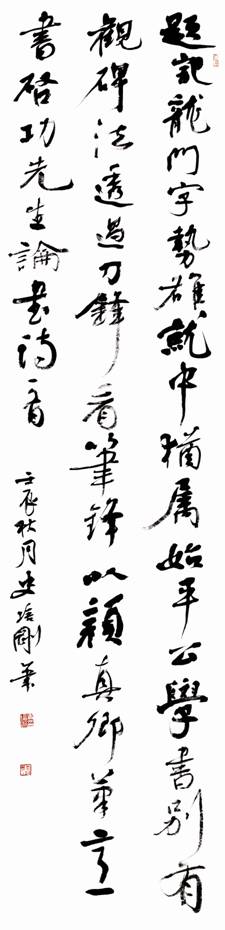 題記龍門字勢雄就中猶屬始平公學書別有
觀碑法透過刀鋒看筆鋒以顏真卿筆意
書啓功先生論書詩一首
壬辰秋月史培剛筆